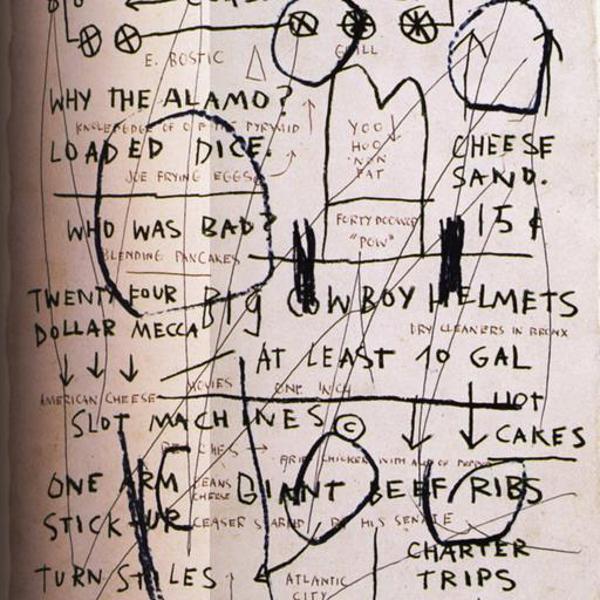 E. BOSTIC
GRILL
WHY THE ALAMO?
KNOWLEDGE OF THE PYRAMID
LOADED DICE.
JOE FRYING EGGS
YOO
HOO
"NON
FAT
CHEESE
SAND.
15¢
WHO WAS BAD?
BLENDING PANCAKES
"POW"
TWENTY FOUR
DOLLAR MECCA
BIG COWBOY HELMETS
DRY CLEANERS IN BRONX
AT LEAST 10 GAL
AMERICAN CHEESE
MOVIES
ONE INCH
HOT
CAKES
SLOT MACHINES ©
ONE ARM
STICK-UP
BEANS
CHEESE
GIANT BEEF RIBS
CEASER STARRED BY HIS SENATE
CHARTER
TRIPS
TURN STILES
ATLANTIC
CITY